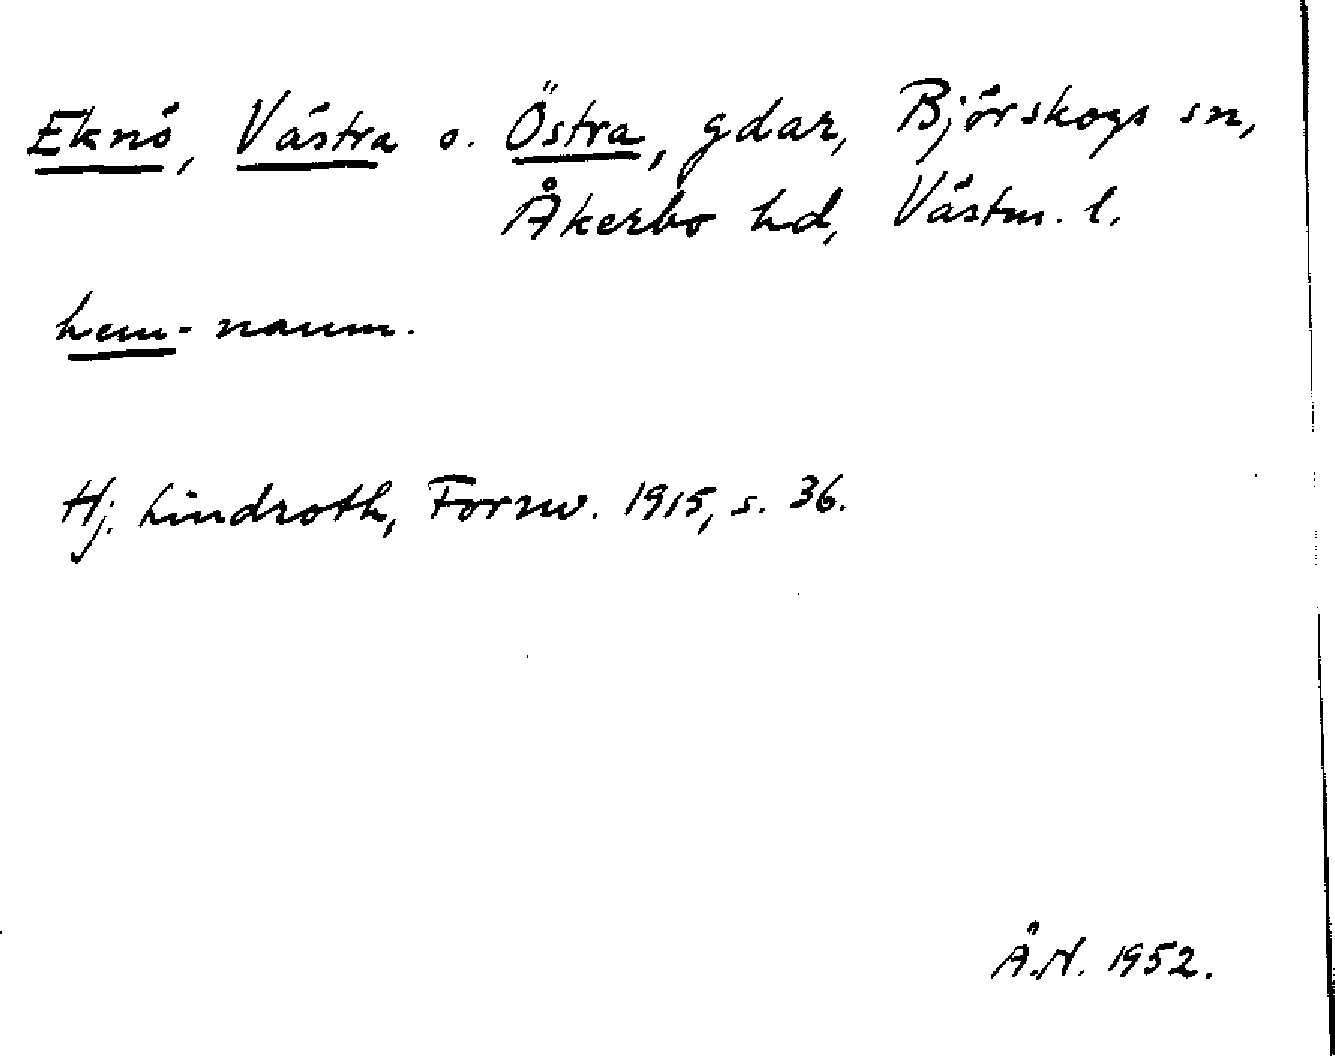 Eknö, Västra o. Östra, gdar, Björskogs sn,
Åkerbo hd, Västm. l.
hem- namn.
Hj. Lindroth, Fornv. 1915, s. 36.
Å.N. 1952.